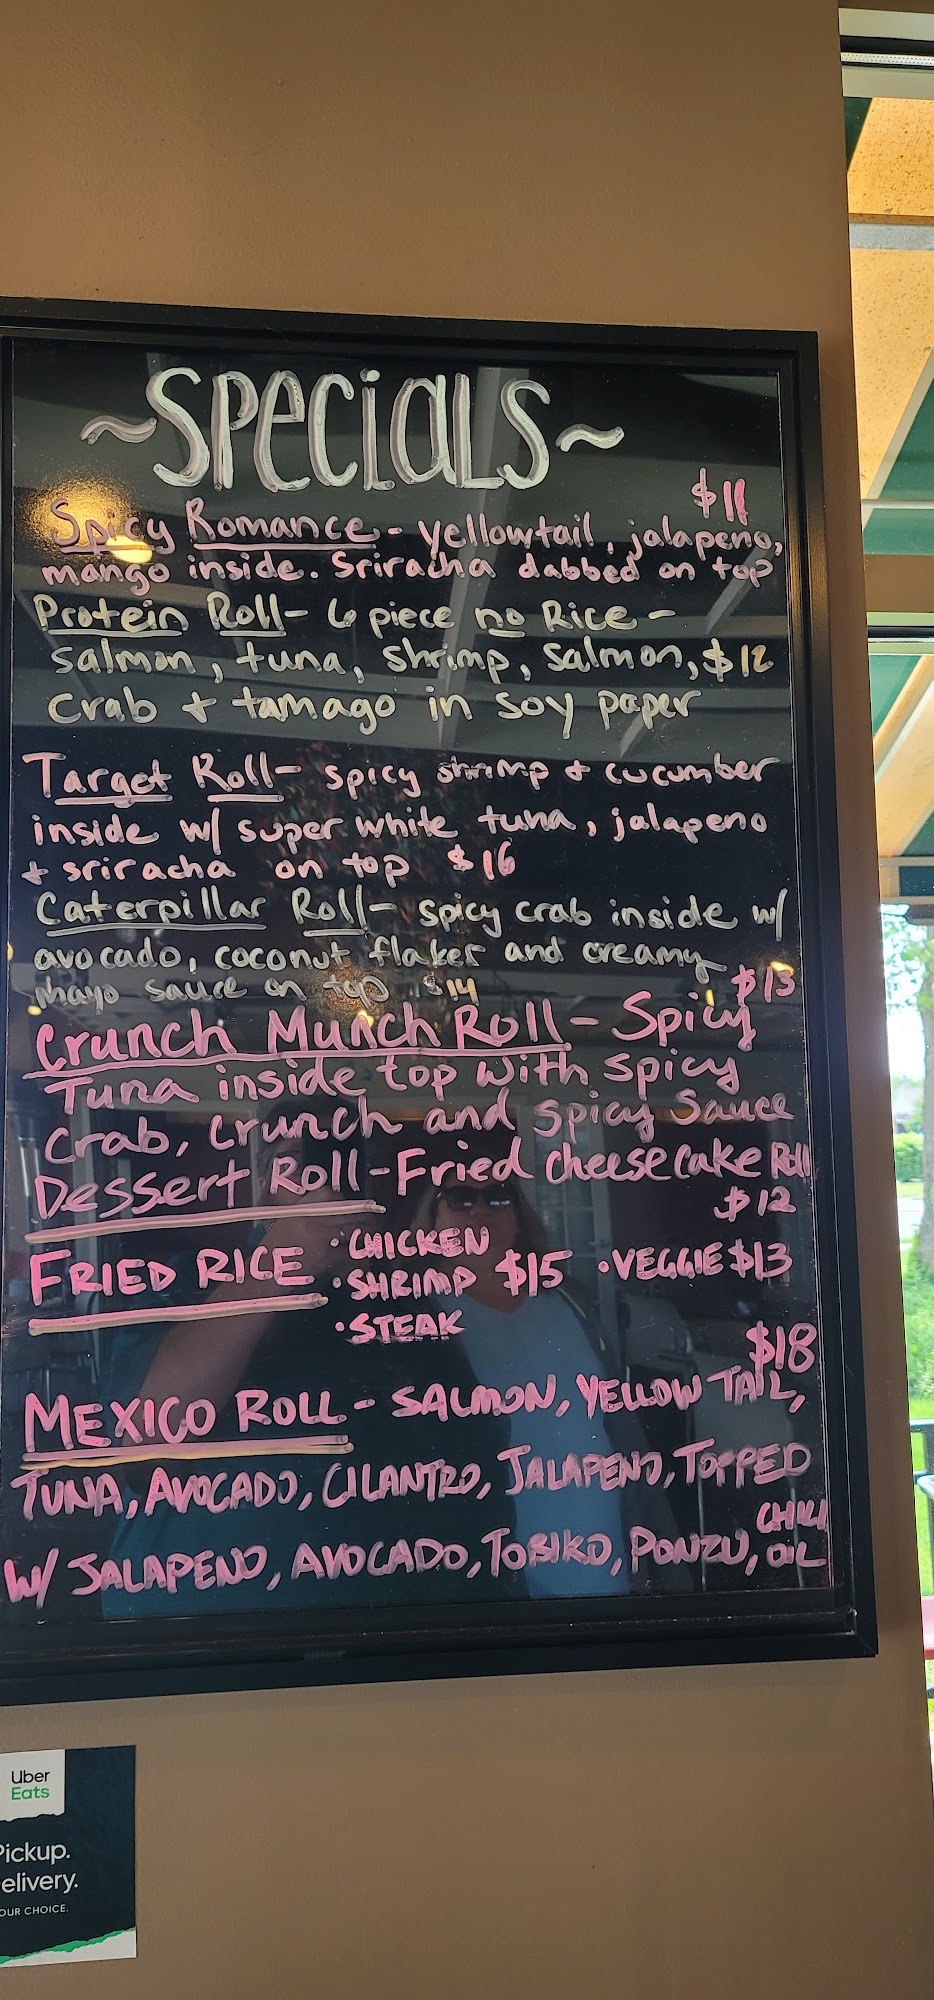 ~SPECiALS~
$11
Spicy Romance - yellowtail, jalapeno,
mango inside. Sriracha dabbed on top
Protein Roll - 6 piece no Rice -
salmon, tuna, shrimp, salmon, $12
Crab + tamago in soy paper
Target Roll - spicy shrimp + cucumber
inside w/ super white tuna, jalapeno
+ sriracha on top $16
Caterpillar Roll - spicy crab inside w/
avocado, coconut flakes and creamy
mayo sauce on top $14
$13
Crunch Munch Roll - Spicy
Tuna inside top with spicy
Crab, Crunch and spicy Sauce
Dessert Roll - Fried cheesecake Roll
$12
FRIED RICE • CHICKEN
• SHRIMP $15 • VEGGIE $13
• STEAK
$18
MEXICO ROLL - SALMON, YELLOW TAIL,
TUNA, AVOCADO, CILANTRO, JALAPENO, TOPPED
W/ JALAPENO, AVOCADO, TOBIKO, PONZU, CHILI OIL
Uber
Eats
Pickup.
elivery.
OUR CHOICE.